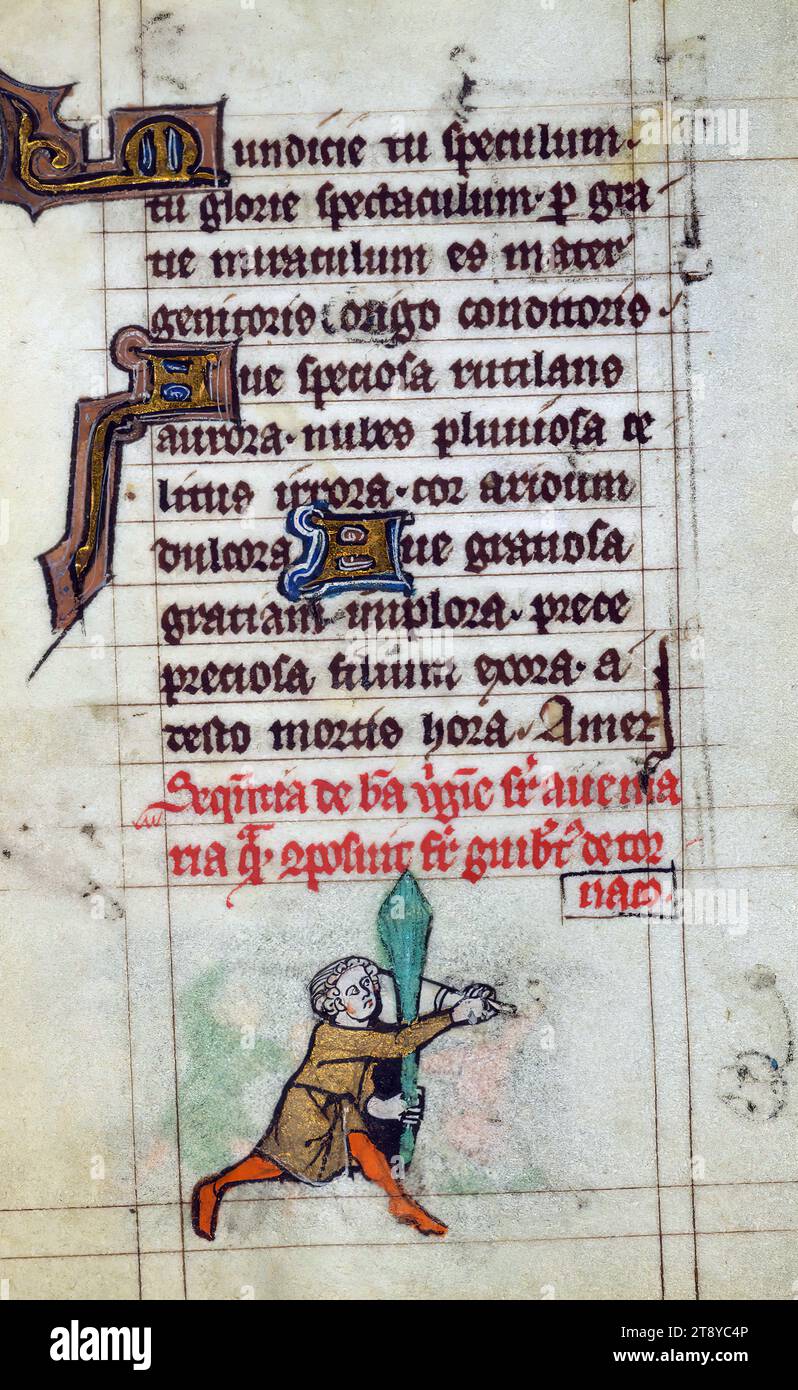 Mundicie tu speculum·
tu glorie spectaculum· p gra
tie miraculum es mater
genitoris origo conditoris·
Aue speciosa rutilans
aurora· nubes pluuiosa ce
litus irrora· cor aridum
dulcora Aue gratiosa
gratiam implora· prece
preciosa filium exora· a
testo mortis hora. Amen
Sequntia de ba v̾gie sr aue ma
ria q̄ 9posuit fr guibt9 de tor
naco.
alamy
Image ID: 2T8YC4P
www.alamy.com